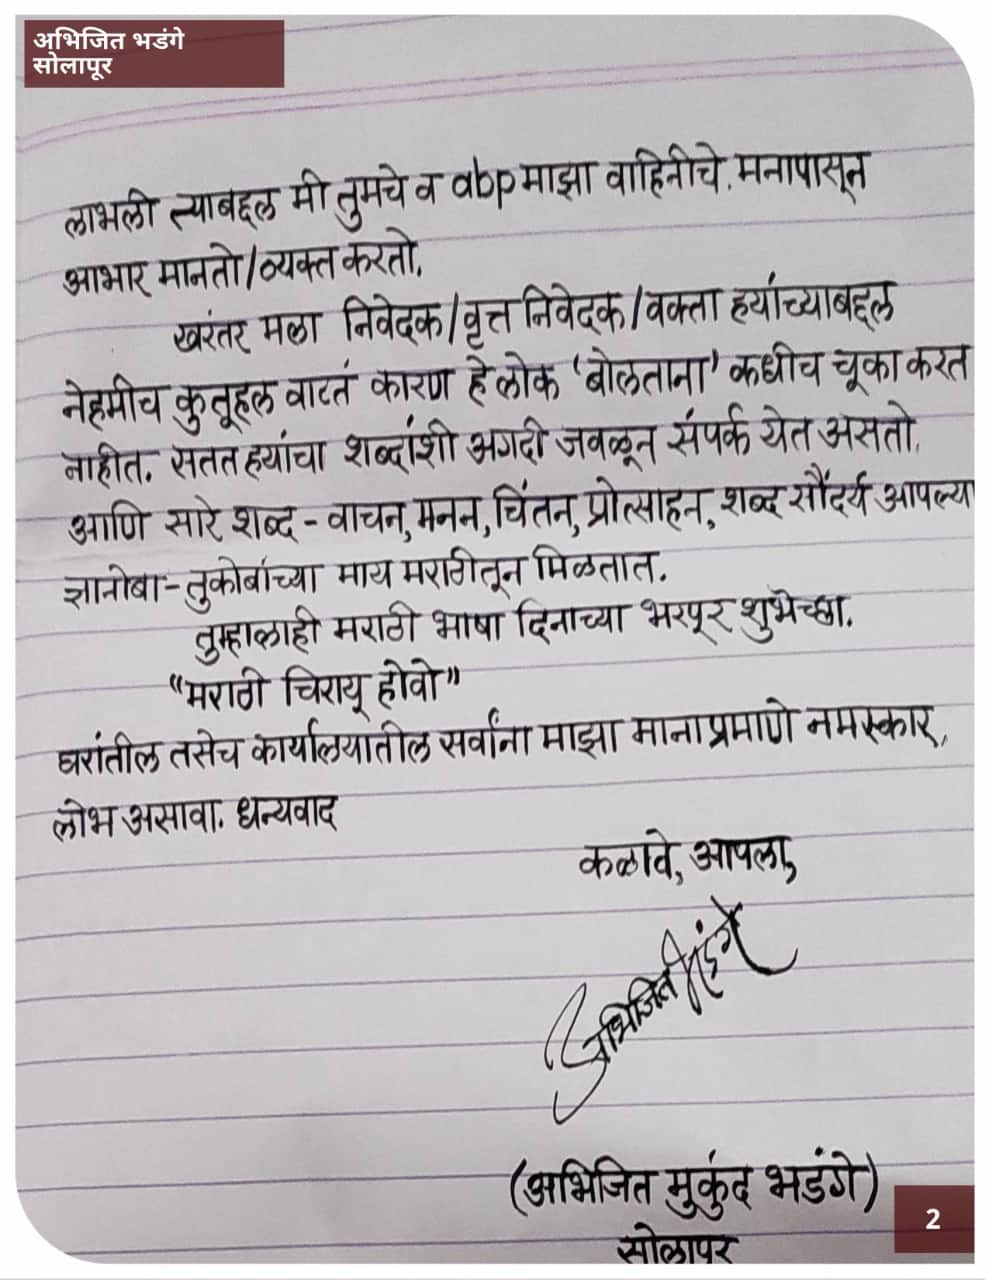 अभिजित भडंगे
सोलापूर
लाभली त्याबद्दल मी तुमचे व abp माझा वाहिनीचे. मनापासून
आभार मानतो/व्यक्त करतो.
खरंतर मला निवेदक/वृत्त निवेदक/वक्ता हयांच्याबद्दल
नेहमीच कुतूहल वाटतं कारण हे लोक 'बोलताना' कधीच चूका करत
नाहीत. सतत हयांचा शब्दांशी अगदी जवळून संपर्क येत असतो.
आणि सारे शब्द - वाचन, मनन, चिंतन, प्रोत्साहन, शब्द सौंदर्य आपल्या
ज्ञानोबा - तुकोबांच्या माय मराठीतून मिळतात.
तुम्हालाही मराठी भाषा दिनाच्या भरपूर शुभेच्छा.
"मराठी चिरायू होवो"
घरांतील तसेच कार्यालयातील सर्वांना माझा मानाप्रमाणे नमस्कार,
लोभ असावा. धन्यवाद
कळावे, आपला,
अभिजित भडंगे
(अभिजित मुकुंद भडंगे)
सोलापूर
2